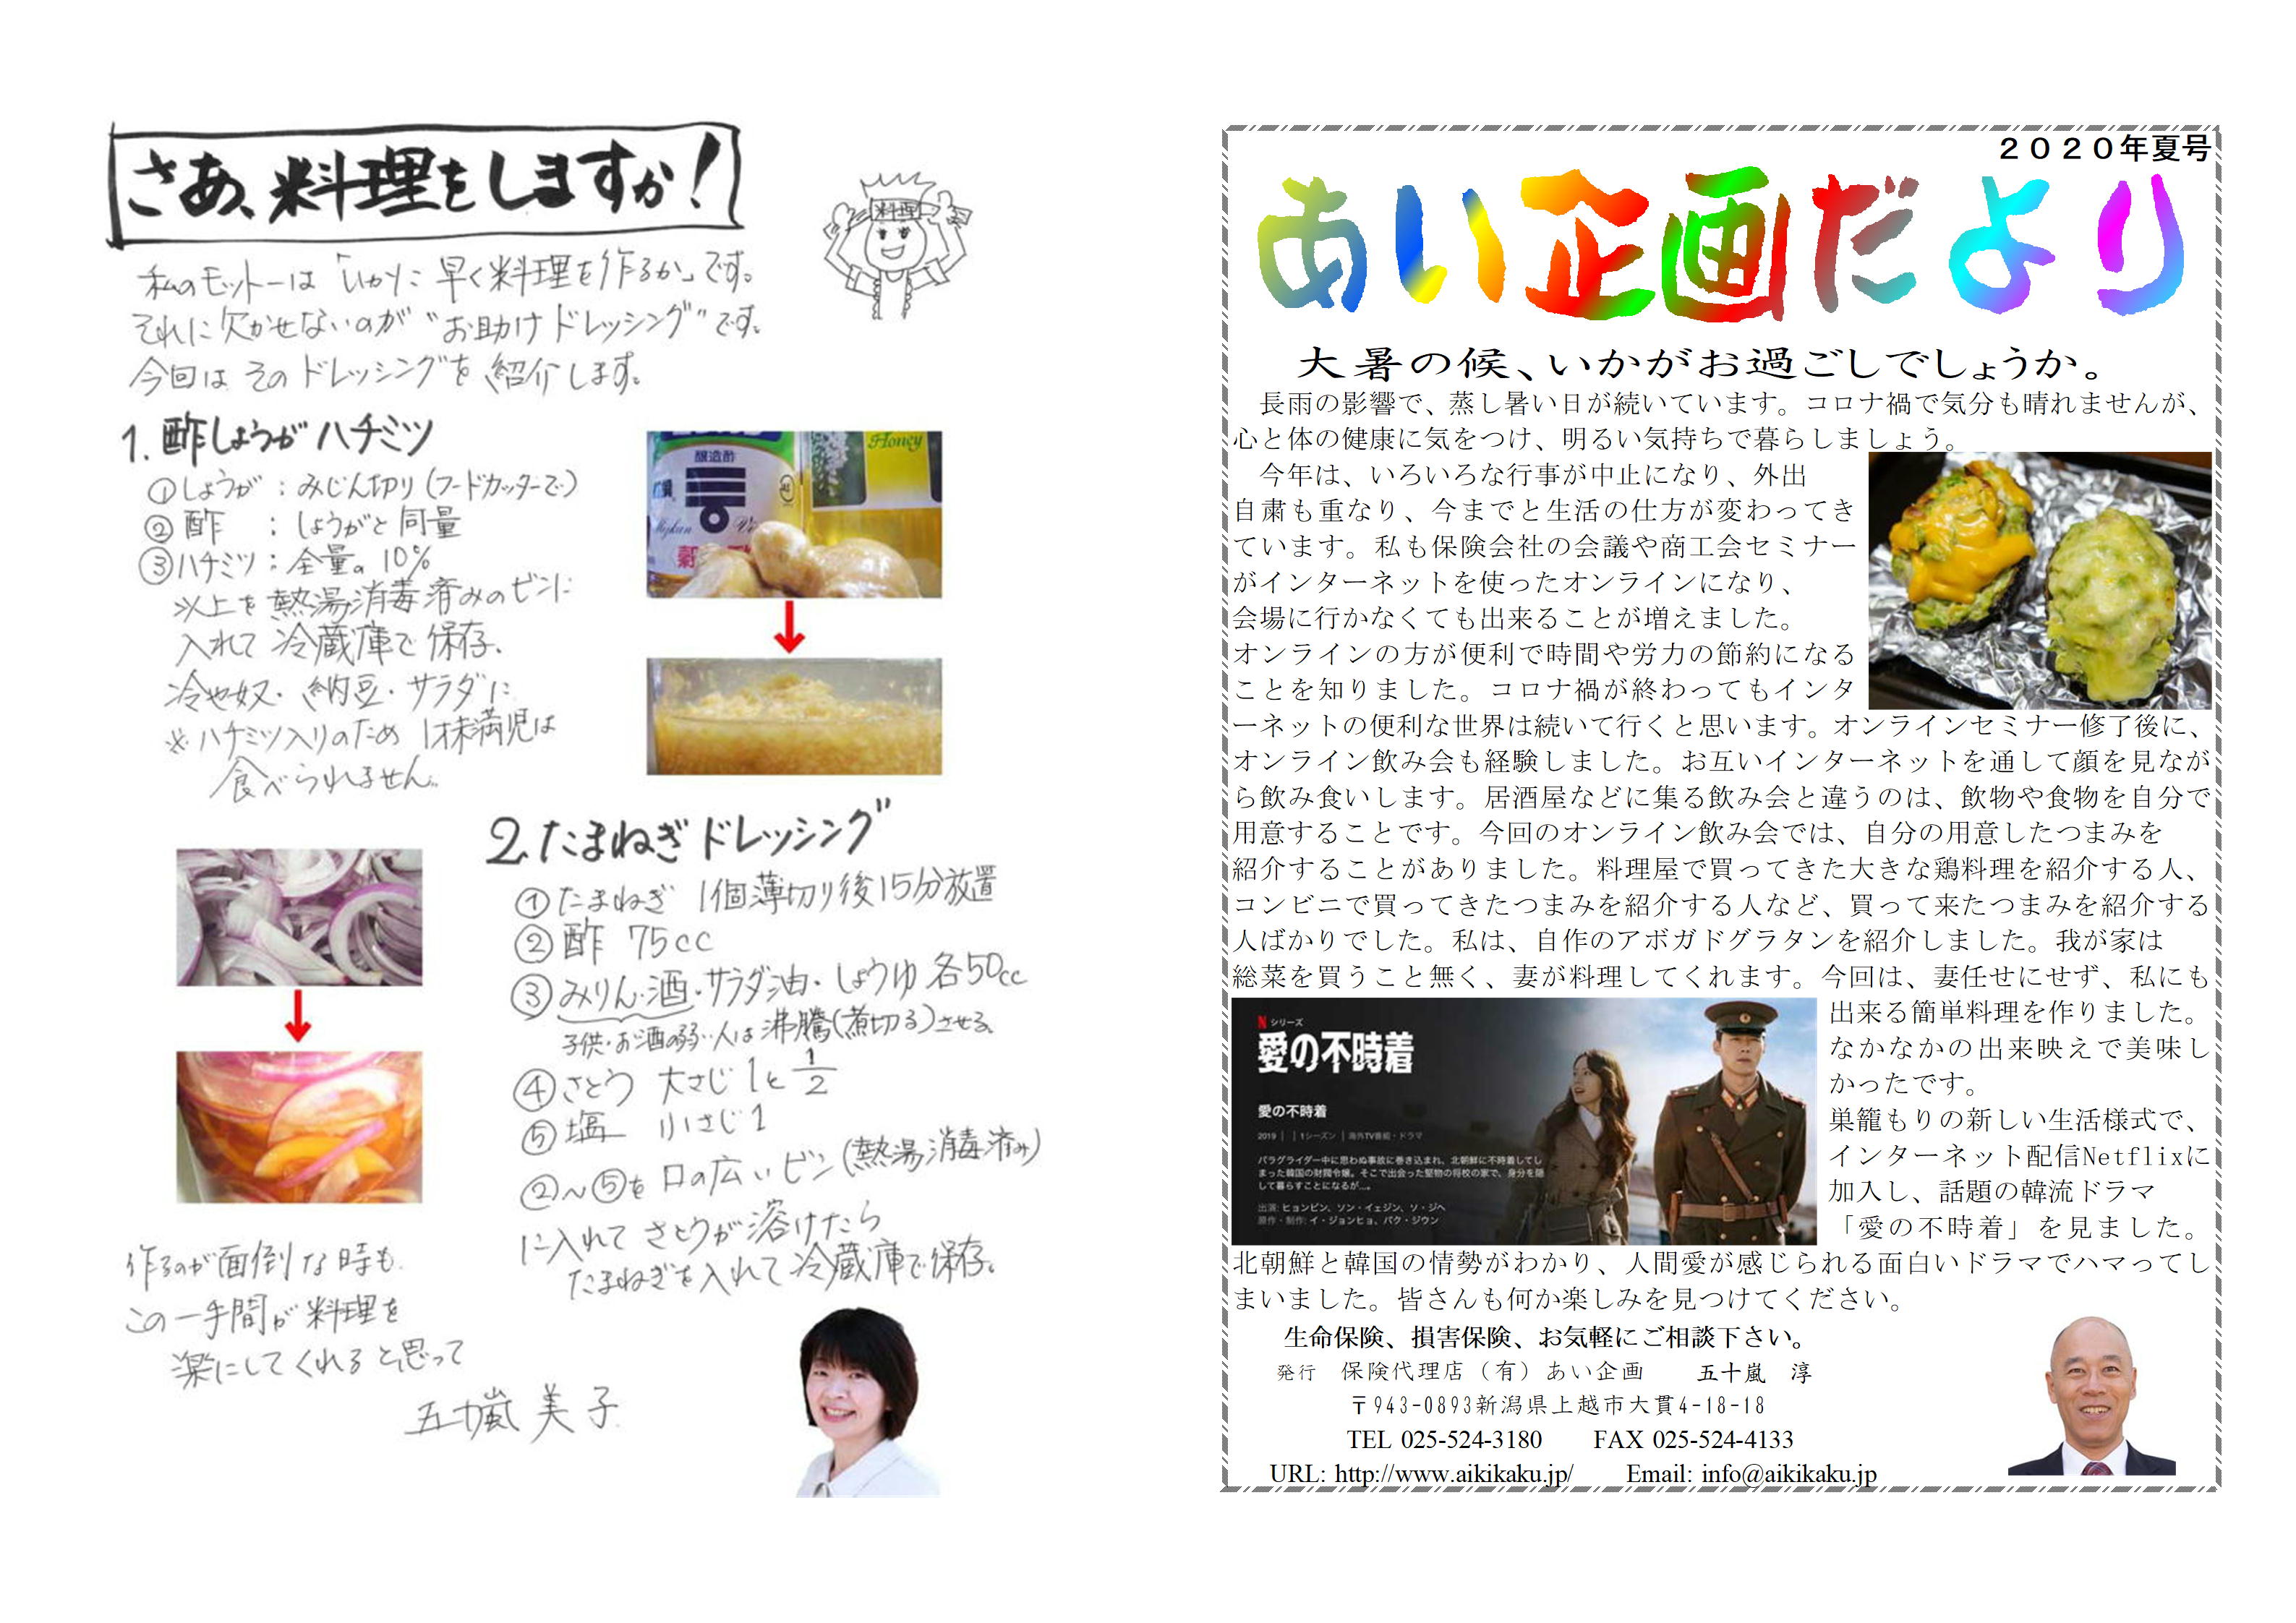 さあ、料理をしますか!
料理
私のモットーは「いかに早く料理を作るか」です。
それに欠かせないのが“お助けドレッシング”です。
今回はそのドレッシングを紹介します。
1. 酢しょうがハチミツ
①しょうが:みじん切り(フードカッターで)
②酢 :しょうがと同量
③ハチミツ:全量の10%
以上を熱湯消毒済みのビンに
入れて冷蔵庫で保存.
冷や奴・納豆・サラダに
※ハチミツ入りのため1才未満児は
食べられません。
醸造酢
Mizkan
穀
Honey
2.たまねぎドレッシング
①たまねぎ 1個薄切り後15分放置
②酢 75cc
③みりん・酒・サラダ油・しょうゆ 各50cc
子供・お酒の弱い人は沸騰(煮切る)させる。
④さとう 大さじ1と1/2
⑤塩 小さじ1
②~⑤を口の広いビン(熱湯消毒済み)
に入れてさとうが溶けたら
たまねぎを入れて冷蔵庫で保存。
作るのが面倒な時も.
この一手間が料理を
楽にしてくれると思って
五十嵐美子
2020年夏号
あい企画だより
大暑の候、いかがお過ごしでしょうか。
長雨の影響で、蒸し暑い日が続いています。コロナ禍で気分も晴れませんが、
心と体の健康に気をつけ、明るい気持ちで暮らしましょう。
今年は、いろいろな行事が中止になり、外出
自粛も重なり、今までと生活の仕方が変わってき
ています。私も保険会社の会議や商工会セミナー
がインターネットを使ったオンラインになり、
会場に行かなくても出来ることが増えました。
オンラインの方が便利で時間や労力の節約になる
ことを知りました。コロナ禍が終わってもインタ
ーネットの便利な世界は続いて行くと思います。オンラインセミナー修了後に、
オンライン飲み会も経験しました。お互いインターネットを通して顔を見なが
ら飲み食いします。居酒屋などに集る飲み会と違うのは、飲物や食物を自分で
用意することです。今回のオンライン飲み会では、自分の用意したつまみを
紹介することがありました。料理屋で買ってきた大きな鶏料理を紹介する人、
コンビニで買ってきたつまみを紹介する人など、買って来たつまみを紹介する
人ばかりでした。私は、自作のアボガドグラタンを紹介しました。我が家は
総菜を買うこと無く、妻が料理してくれます。今回は、妻任せにせず、私にも
出来る簡単料理を作りました。
なかなかの出来映えで美味し
かったです。
巣籠もりの新しい生活様式で、
インターネット配信Netflixに
加入し、話題の韓流ドラマ
「愛の不時着」を見ました。
N シリーズ
愛の不時着
愛の不時着
2019 | | 1シーズン | 海外TV番組・ドラマ
パラグライダー中に思わぬ事故に巻き込まれ、北朝鮮に不時着してし
まった韓国の財閥令嬢。そこで出会った堅物の将校の家で、身分を隠
して暮らすことになるが…。
出演: ヒョンビン、ソン・イェジン、ソ・ジヘ
原作・制作: イ・ジョンヒョ、パク・ジウン
北朝鮮と韓国の情勢がわかり、人間愛が感じられる面白いドラマでハマってし
まいました。皆さんも何か楽しみを見つけてください。
生命保険、損害保険、お気軽にご相談下さい。
発行 保険代理店(有)あい企画 五十嵐 淳
〒943-0893新潟県上越市大貫4-18-18
TEL 025-524-3180 FAX 025-524-4133
URL: http://www.aikikaku.jp/ Email: info@aikikaku.jp